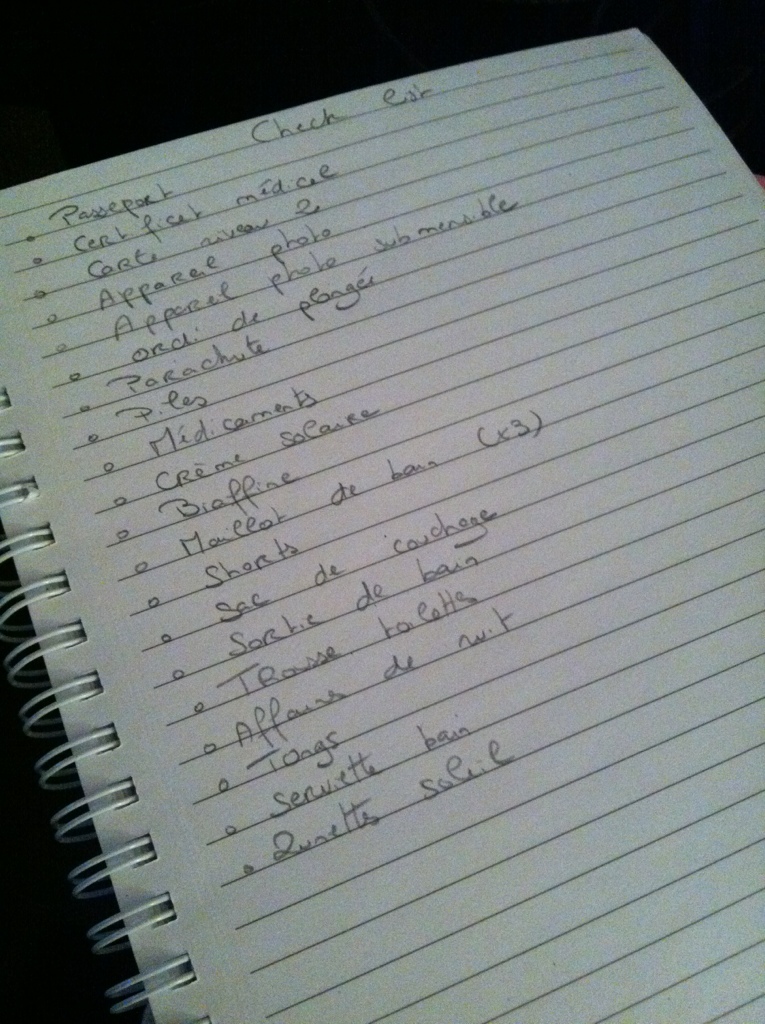 Check list
° Passeport
° Certificat médical
° Carte niveau 2
° Appareil photo
° Appareil photo submersible
° ordi de plongée
° Parachute
° Piles
° Médicaments
° Crème solaire
° Biaffine
° Maillot de bain (x3)
° Shorts
° Sac de couchage
° Sortie de bain
° Trousse toilette
° Affaires de nuit
° Tongs
° Serviette bain
° Lunettes soleil